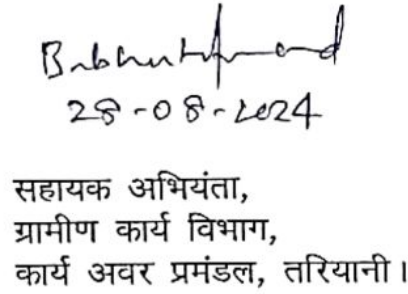 28-08-2024
सहायक अभियंता,
ग्रामीण कार्य विभाग,
कार्य अवर प्रमंडल, तरियानी।